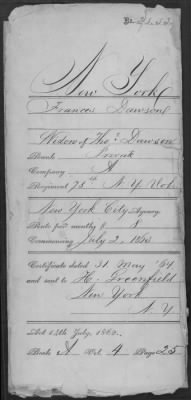 New York
Frances Dawson
Widow of Thos. Dawson
Rank Private
Company A
Regiment 75 th N.Y. Vol
New York City Agency
Rate per month $ 8
Commencing July 2, 1863
Certificate dated 31 May '64
and sent to H. Greenfield
New York
N.Y.
Act 14th July, 1862.
Book A Vol 4 Page 25